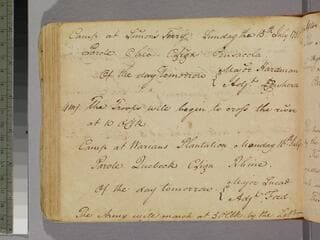 Camp at Simons Ferry Sunday the 15th July 17
Parole Ohio CSign Pensacola
Of the day tomorrow { Major Hardman
Adjt.
The Troops will begin to cross the river
at 10 oClk.
Camp at Plantation Monday 16th July
Parole Quebeck CSign Rhine
Of the day tomorrow { Major Lucas
Adjt. Ford
The Army will march at 5 oClk by the